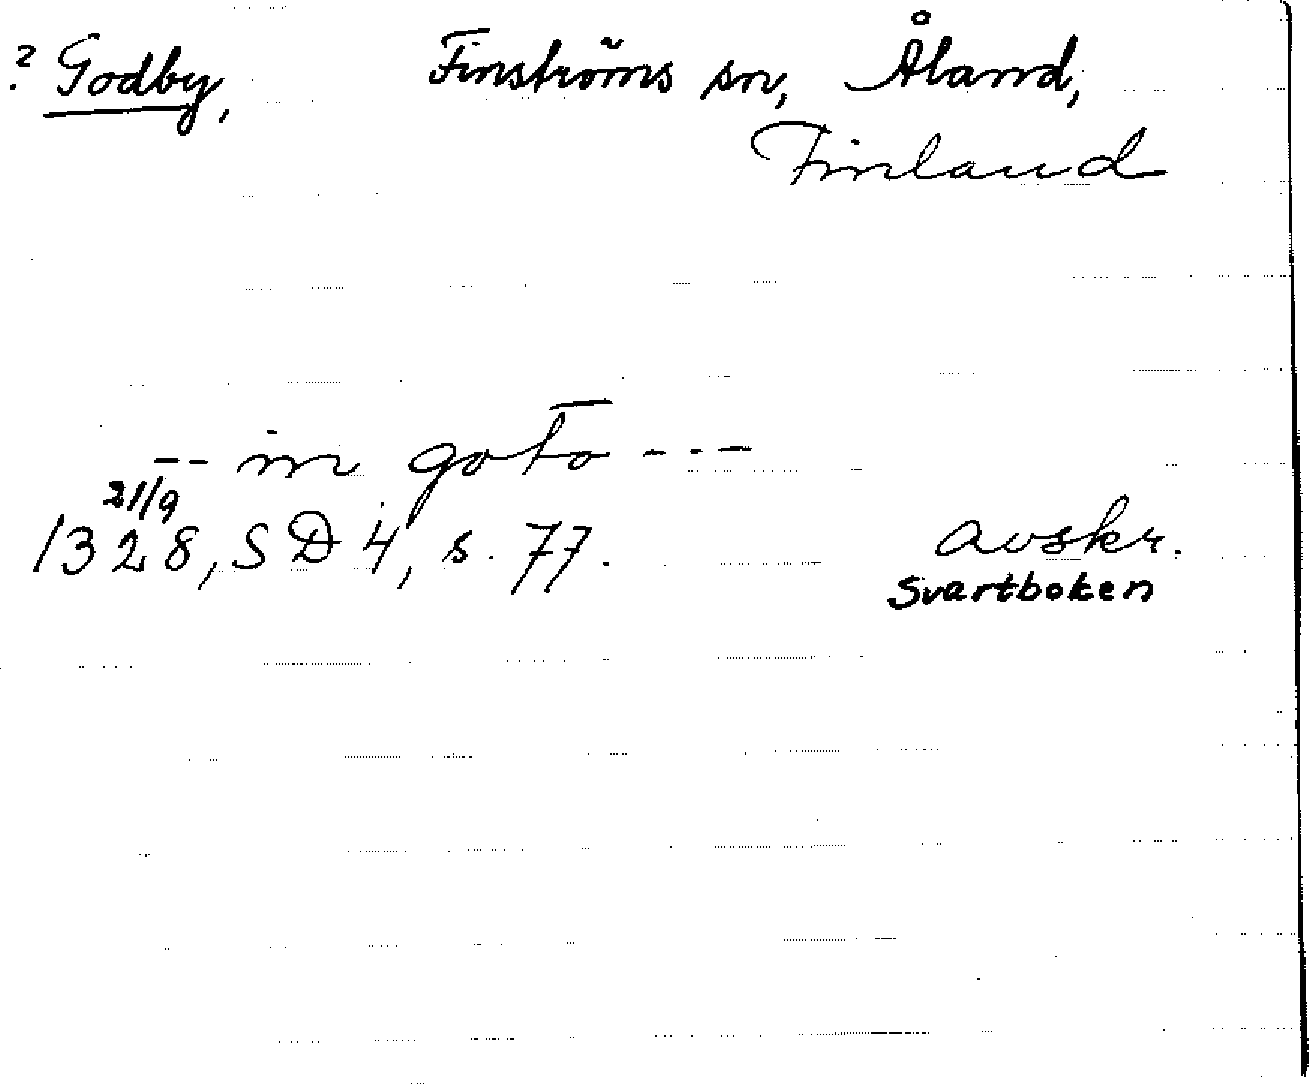 ? Godby, Finströms sn, Åland,
Finland
-- in goto ---
21/9
1328, SD 4, s. 77. avskr.
Svartboken